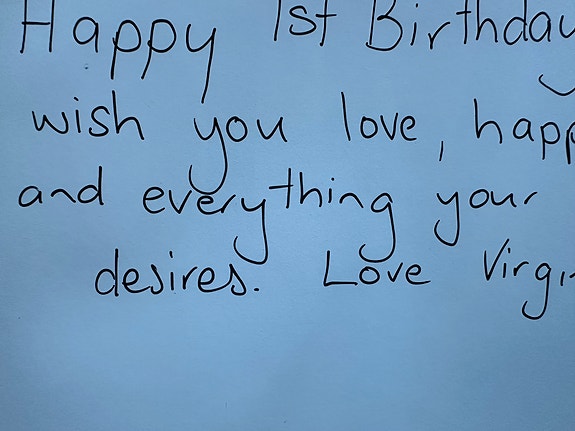 Happy 1st Birthday
wish you love, happ
and everything your
desires. Love Virgi